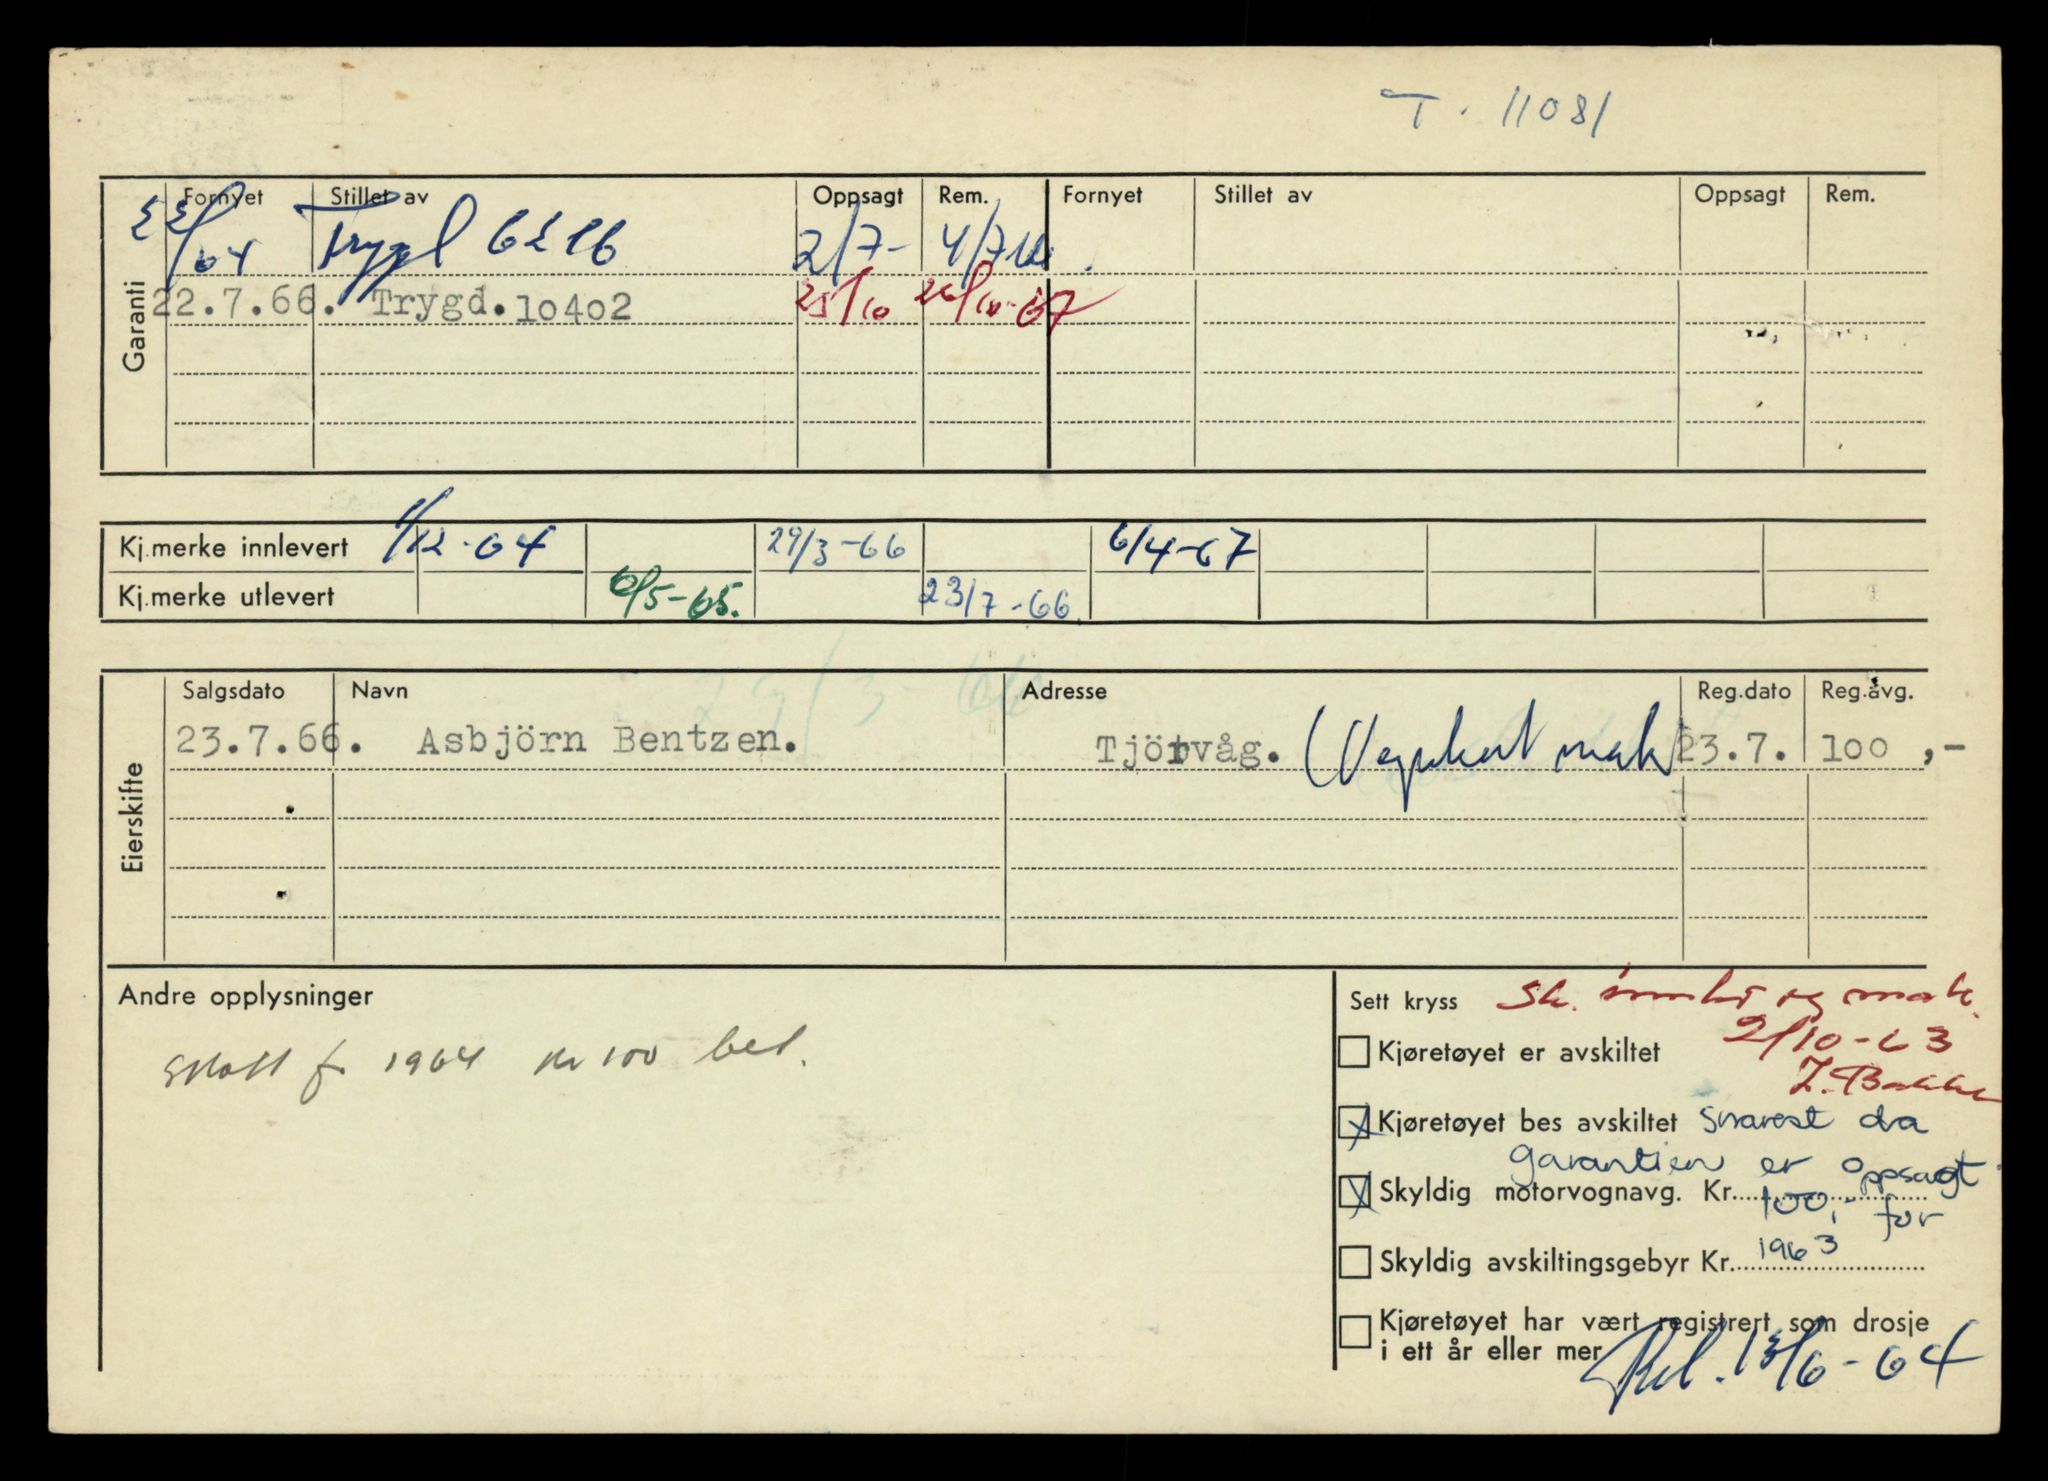 T. 11081
Garanti
Fornyet Stillet av Oppsagt Rem. Fornyet Stillet av Oppsagt Rem.
/64 2/7- 4/7
22.7.66. Trygd. 10402 25/10 26/10-67
Kj.merke innlevert /12-64 29/3-66 6/4-67
Kj.merke utlevert 6/5-65. 23/7-66.
29/3-66
Eierskifte
Salgsdato Navn Adresse Reg.dato Reg.avg.
23.7.66. Asbjörn Bentzen. Tjörvåg. (Vognkort mak 23.7. 100,-
Andre opplysninger
Skatt f. 1964 kr 100 bet.
Sett kryss Sk. og mak.
2/10-63
Kjøretøyet er avskiltet
Bakke
Kjøretøyet bes avskiltet snarest da
garantien er oppsagt
Skyldig motorvognavg. Kr. 100,- for
1963
Skyldig avskiltingsgebyr Kr.
Kjøretøyet har vært registrert som drosje
i ett år eller mer
13/6-64